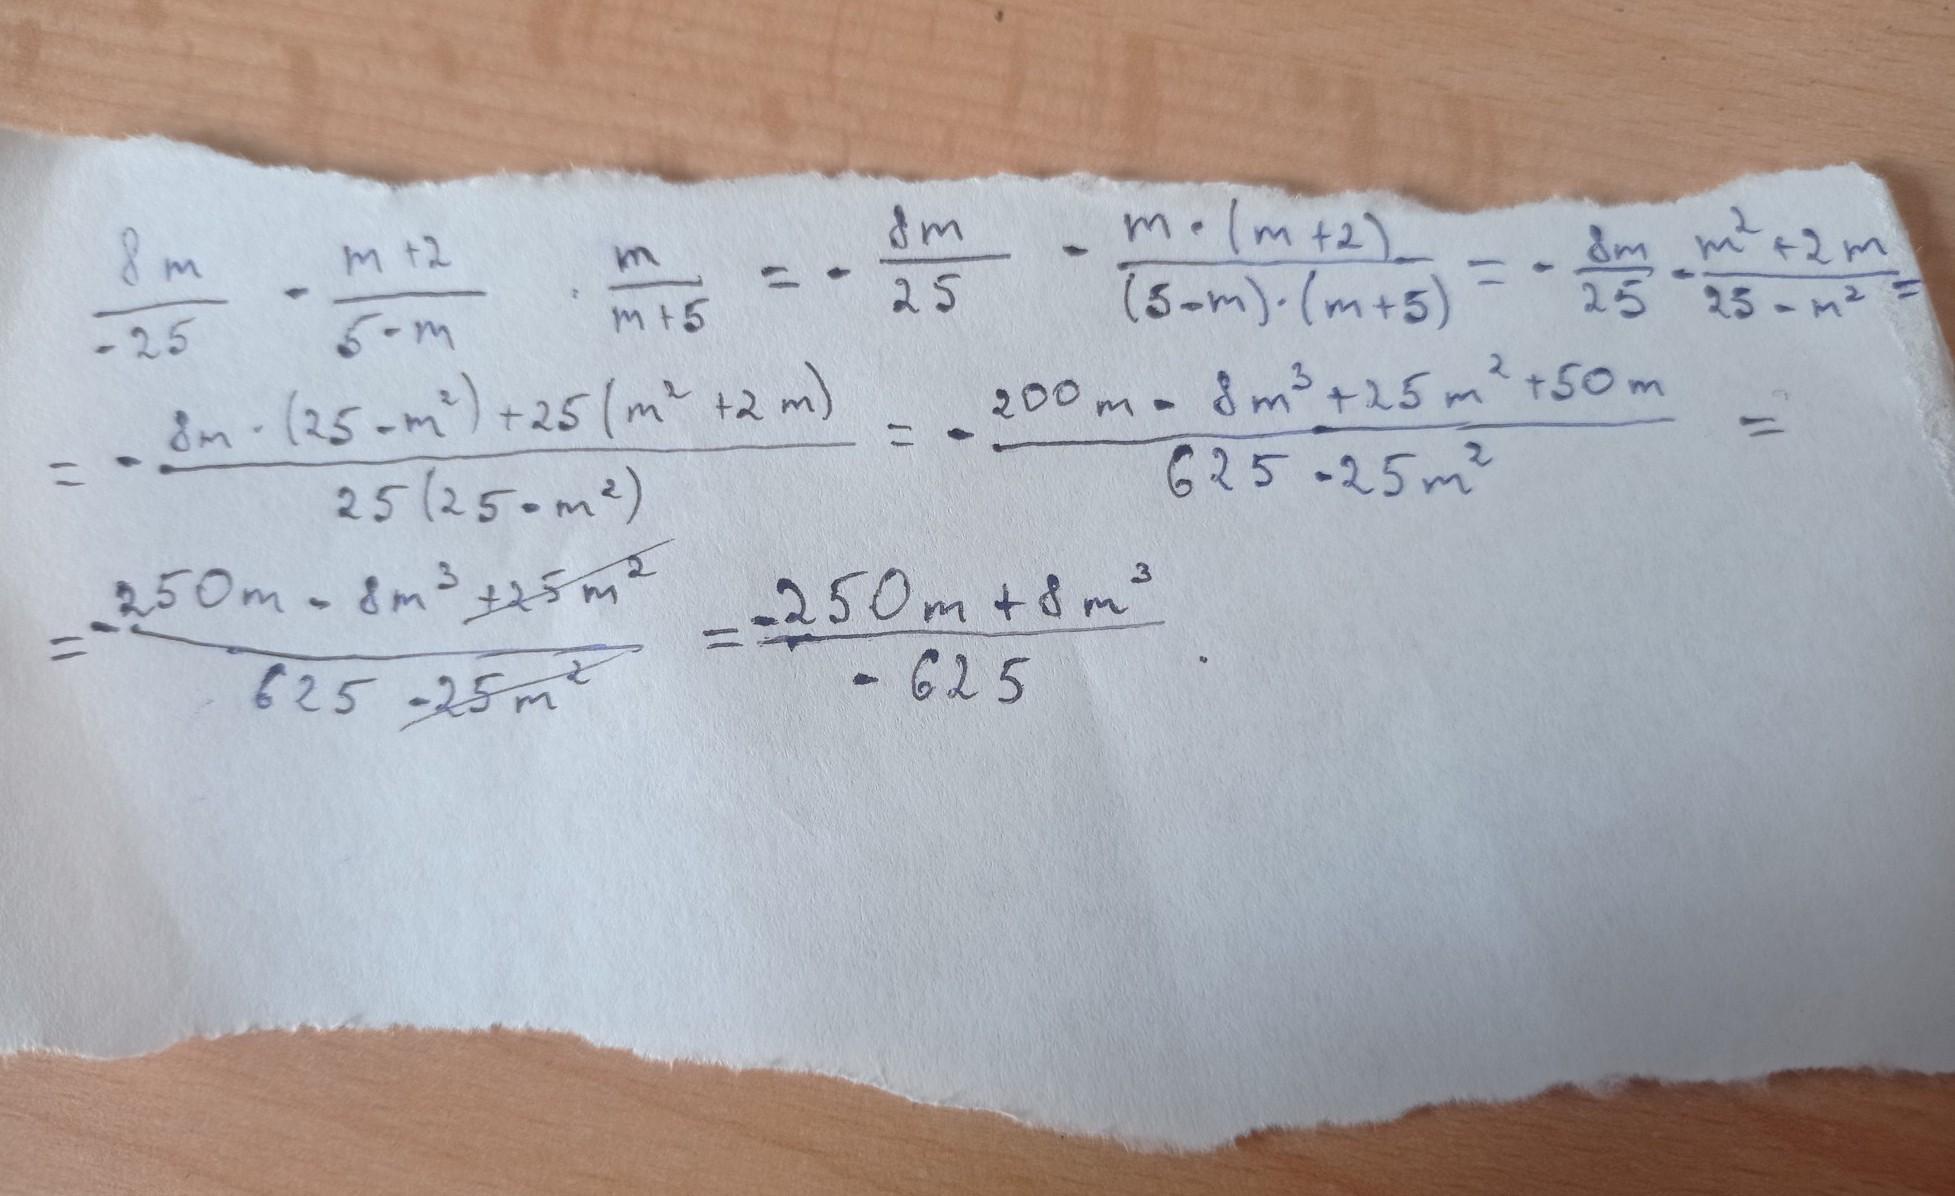 8m/-25 - m+2/5-m · m/m+5 = - 8m/25 - m·(m+2)/(5-m)·(m+5) = - 8m/25 - m²+2m/25-m² =
= - 8m·(25-m²)+25(m²+2m)/25(25-m²) = - 200m-8m³+25m²+50m/625-25m² =
= - 250m-8m³+25m²/625-25m² = -250m+8m³/-625 .